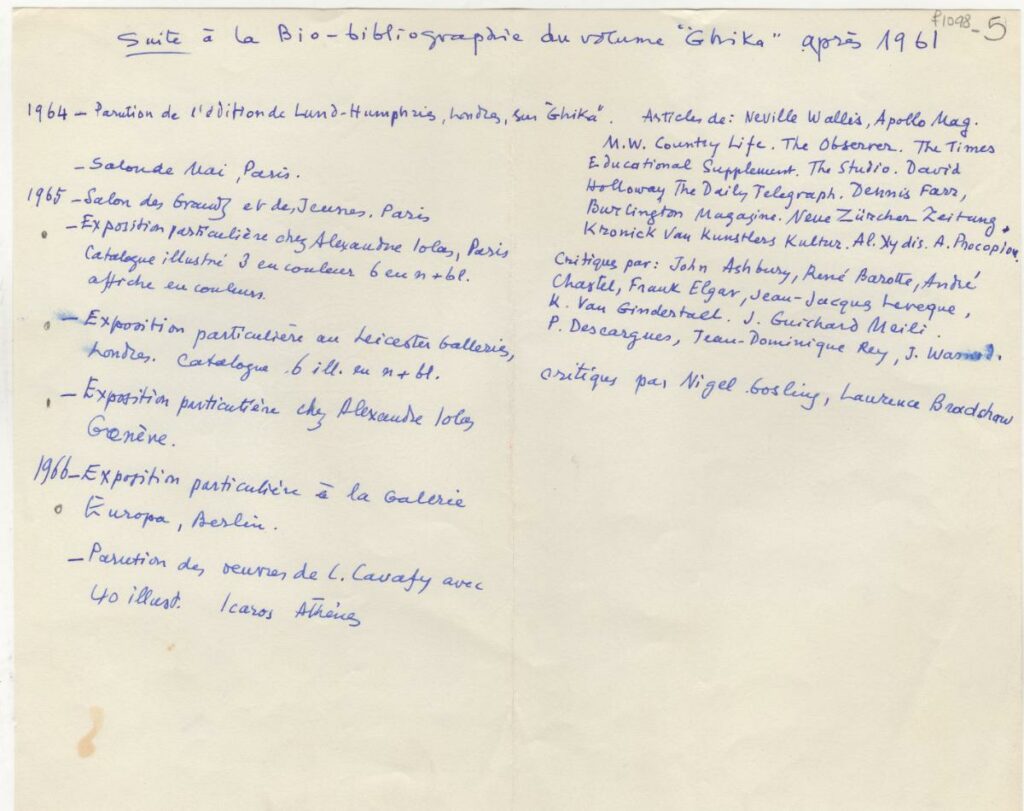 f1098-5
Suite à la Bio-bibliographie du volume "Ghika" après 1961
1964 – Parution de l'édition de Lund-Humphries, Londres, sur "Ghika".
– Salon de Mai, Paris.
1965 – Salon des Grands et des Jeunes. Paris
– Exposition particulière chez Alexandre Iolas, Paris
Catalogue illustré 3 en couleur 6 en n+bl.
affiche en couleurs.
– Exposition particulière au Leicester Galleries,
Londres. Catalogue 6 ill. en n+bl.
– Exposition particulière chez Alexandre Iolas
Genève.
1966 – Exposition particulière à la Galerie
Europa, Berlin.
– Parution des oeuvres de C. Cavafy avec
40 illust. Icaros Athènes
Articles de: Neville Wallis, Apollo Mag.
M.W. Country Life. The Observer. The Times
Educational Supplement. The Studio. David
Holloway The Daily Telegraph. Dennis Farr,
Burlington Magazine. Neue Zürcher Zeitung.
Kronick Van Kunstlers Kultur. Al. Xydis. A. Procopiou.
Critiques par: John Ashbury, René Barotte, André
Chastel, Frank Elgar, Jean-Jacques Leveque,
K. Van Gindertael. J. Guichard Meili.
P. Descargues, Jean-Dominique Rey, J. Warnod.
critiques par Nigel Gosling, Laurence Bradshaw